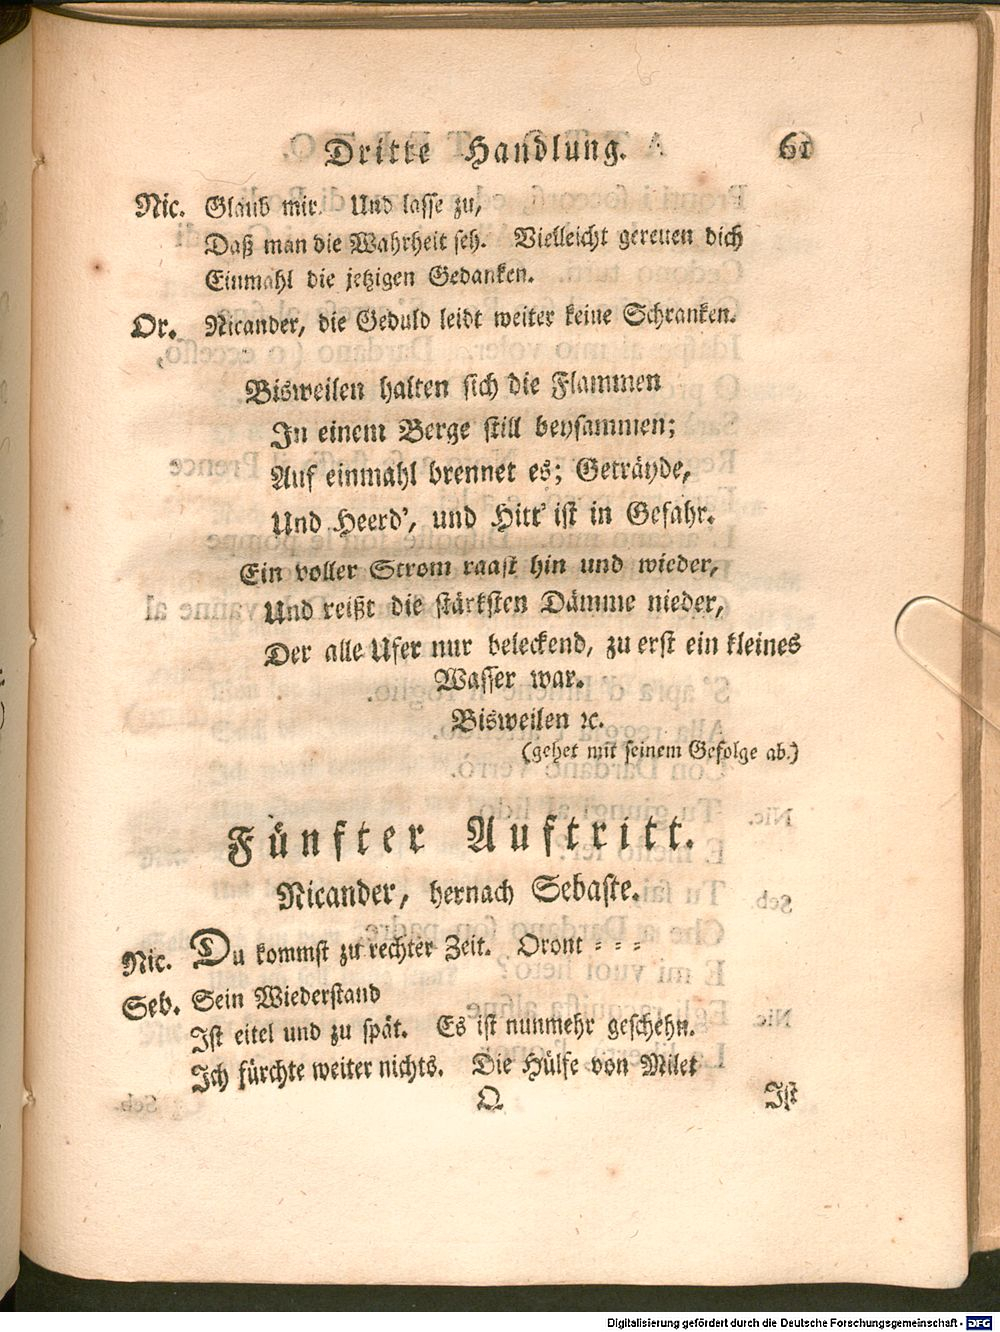 Dritte Handlung. 61
Nic. Glaub mir. Und lasse zu,
Daß man die Wahrheit seh. Vielleicht gereuen dich
Einmahl die jetzigen Gedanken.
Or. Nicander, die Geduld leidt weiter keine Schranken.
Bisweilen halten sich die Flammen
In einem Berge still beysammen;
Auf einmahl brennet es; Geträyde,
Und Heerd', und Hirt' ist in Gefahr.
Ein voller Strom raast hin und wieder,
Und reißt die stärksten Dämme nieder,
Der alle Ufer nur beleckend, zu erst ein kleines
Wasser war.
Bisweilen ꝛc.
(gehet mit seinem Gefolge ab.)
Fünfter Auftritt.
Nicander, hernach Sebaste.
Nic. Du kommst zu rechter Zeit. Oront = = =
Seb. Sein Wiederstand
Ist eitel und zu spät. Es ist nunmehr geschehn.
Ich fürchte weiter nichts. Die Hülfe von Milet
Q Ist
Digitalisierung gefördert durch die Deutsche Forschungsgemeinschaft - DFG